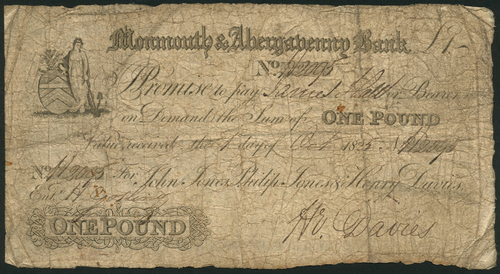 Monmouth & Abergavenny Bank. £1-
No.
I Promise to pay or Bearer
on Demand the Sum of ONE POUND
Value received the 1 day of Oct 1825
No. For John Jones, Philip Jones & Henry Davies,
Ent.
ONE POUND Hy. Davies